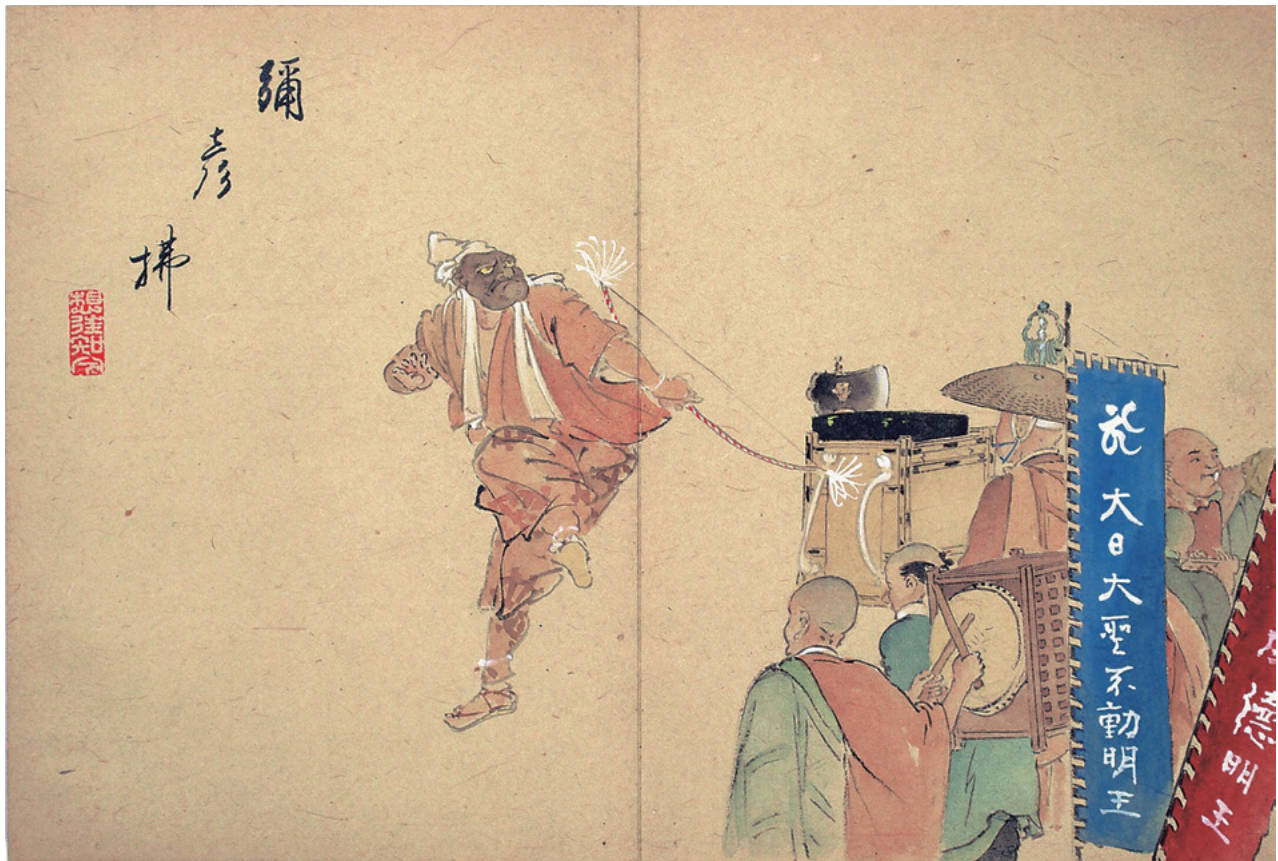 彌彦拂
大日大聖不動明王
德明王